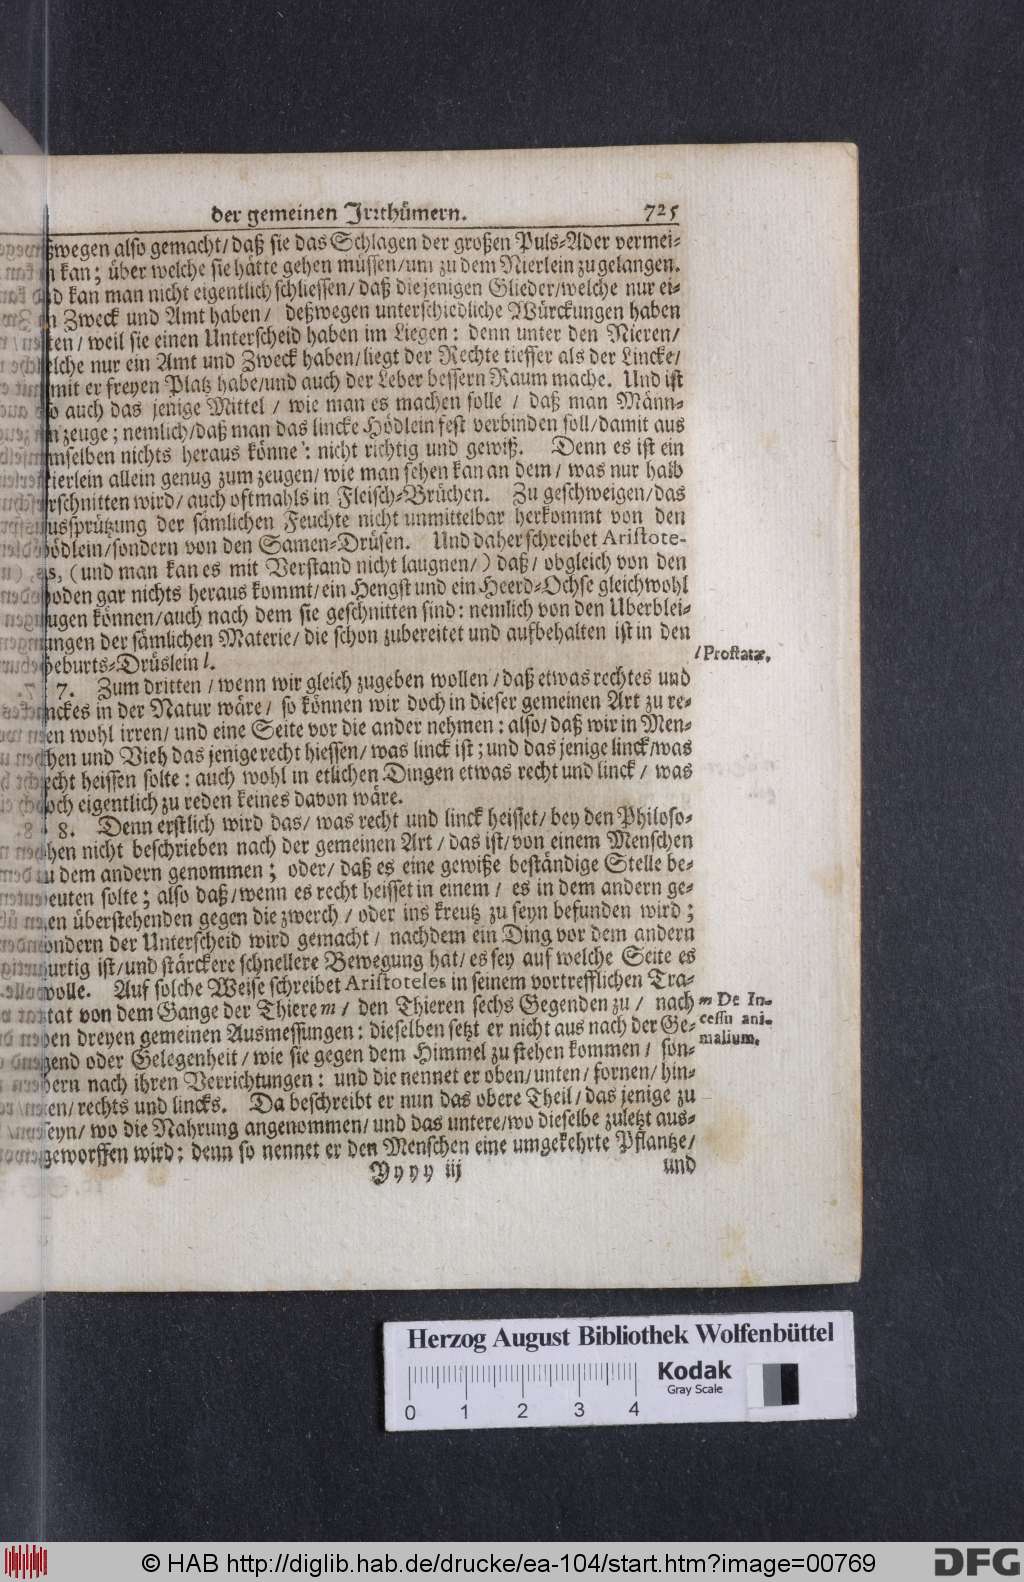 der gemeinen Irrthümern. 725
ßwegen also gemacht/ daß sie das Schlagen der großen Puls-Ader vermei-
n kan; über welche sie hätte gehen müssen/ um zu dem Nierlein zu gelangen.
d kan man nicht eigentlich schliessen/ daß diejenigen Glieder/ welche nur ei-
n Zweck und Amt haben/ deßwegen unterschiedliche Würckungen haben
ten/ weil sie einen Unterscheid haben im Liegen: denn unter den Nieren/
lche nur ein Amt und Zweck haben/ liegt der Rechte tieffer als der Lincke/
mit er freyen Platz habe/ und auch der Leber bessern Raum mache. Und ist
o auch das jenige Mittel/ wie man es machen solle/ daß man Männ-
n zeuge; nemlich/ daß man das lincke Hödlein fest verbinden soll/ damit aus
mselben nichts heraus könne: nicht richtig und gewiß. Denn es ist ein
ierlein allein genug zum zeugen/ wie man sehen kan an dem/ was nur halb
rschnitten wird/ auch oftmahls in Fleisch-Brüchen. Zu geschweigen/ das
ussprützung der sämlichen Feuchte nicht unmittelbar herkommt von den
ödlein/ sondern von den Samen-Drüsen. Und daher schreibet Aristote-
s, (und man kan es mit Verstand nicht laugnen/) daß/ obgleich von den
oden gar nichts heraus kommt/ ein Hengst und ein Heerd-Ochse gleichwohl
ugen können/ auch nach dem sie geschnitten sind: nemlich von den Uberblei-
ungen der sämlichen Materie/ die schon zubereitet und aufbehalten ist in den
Geburts-Drüslein l.
l Prostatæ.
7. Zum dritten/ wenn wir gleich zugeben wollen/ daß etwas rechtes und
nckes in der Natur wäre/ so können wir doch in dieser gemeinen Art zu re-
en wohl irren/ und eine Seite vor die ander nehmen: also/ daß wir in Men-
chen und Vieh das jenige recht hiessen/ was linck ist; und das jenige linck/ was
echt heissen solte: auch wohl in etlichen Dingen etwas recht und linck/ was
och eigentlich zu reden keines davon wäre.
8. Denn erstlich wird das/ was recht und linck heisset/ bey den Philoso-
hen nicht beschrieben nach der gemeinen Art/ das ist/ von einem Menschen
u dem andern genommen; oder/ daß es eine gewiße beständige Stelle be-
euten solte; also daß/ wenn es recht heisset in einem/ es in dem andern ge-
en überstehenden gegen die zwerch/ oder ins kreutz zu seyn befunden wird;
ondern der Unterscheid wird gemacht/ nachdem ein Ding vor dem andern
urtig ist/ und stärckere schnellere Bewegung hat/ es sey auf welche Seite es
wolle. Auf solche Weise schreibet Aristoteles in seinem vortrefflichen Tra-
tat von dem Gange der Thiere m/ den Thieren sechs Gegenden zu/ nach
en dreyen gemeinen Ausmessungen: dieselben setzt er nicht aus nach der Ge-
gend oder Gelegenheit/ wie sie gegen dem Himmel zu stehen kommen/ son-
ern nach ihren Verrichtungen: und die nennet er oben/ unten/ fornen/ hin-
en/ rechts und lincks. Da beschreibt er nun das obere Theil/ das jenige zu
seyn/ wo die Nahrung angenommen/ und das untere/ wo dieselbe zuletzt aus-
geworffen wird: denn so nennet er den Menschen eine umgekehrte Pflantze/
m De In-
cessu ani-
malium.
Yyyy iij und
Herzog August Bibliothek Wolfenbüttel
Kodak
Gray Scale
0 1 2 3 4
© HAB http://diglib.hab.de/drucke/ea-104/start.htm?image=00769
DFG